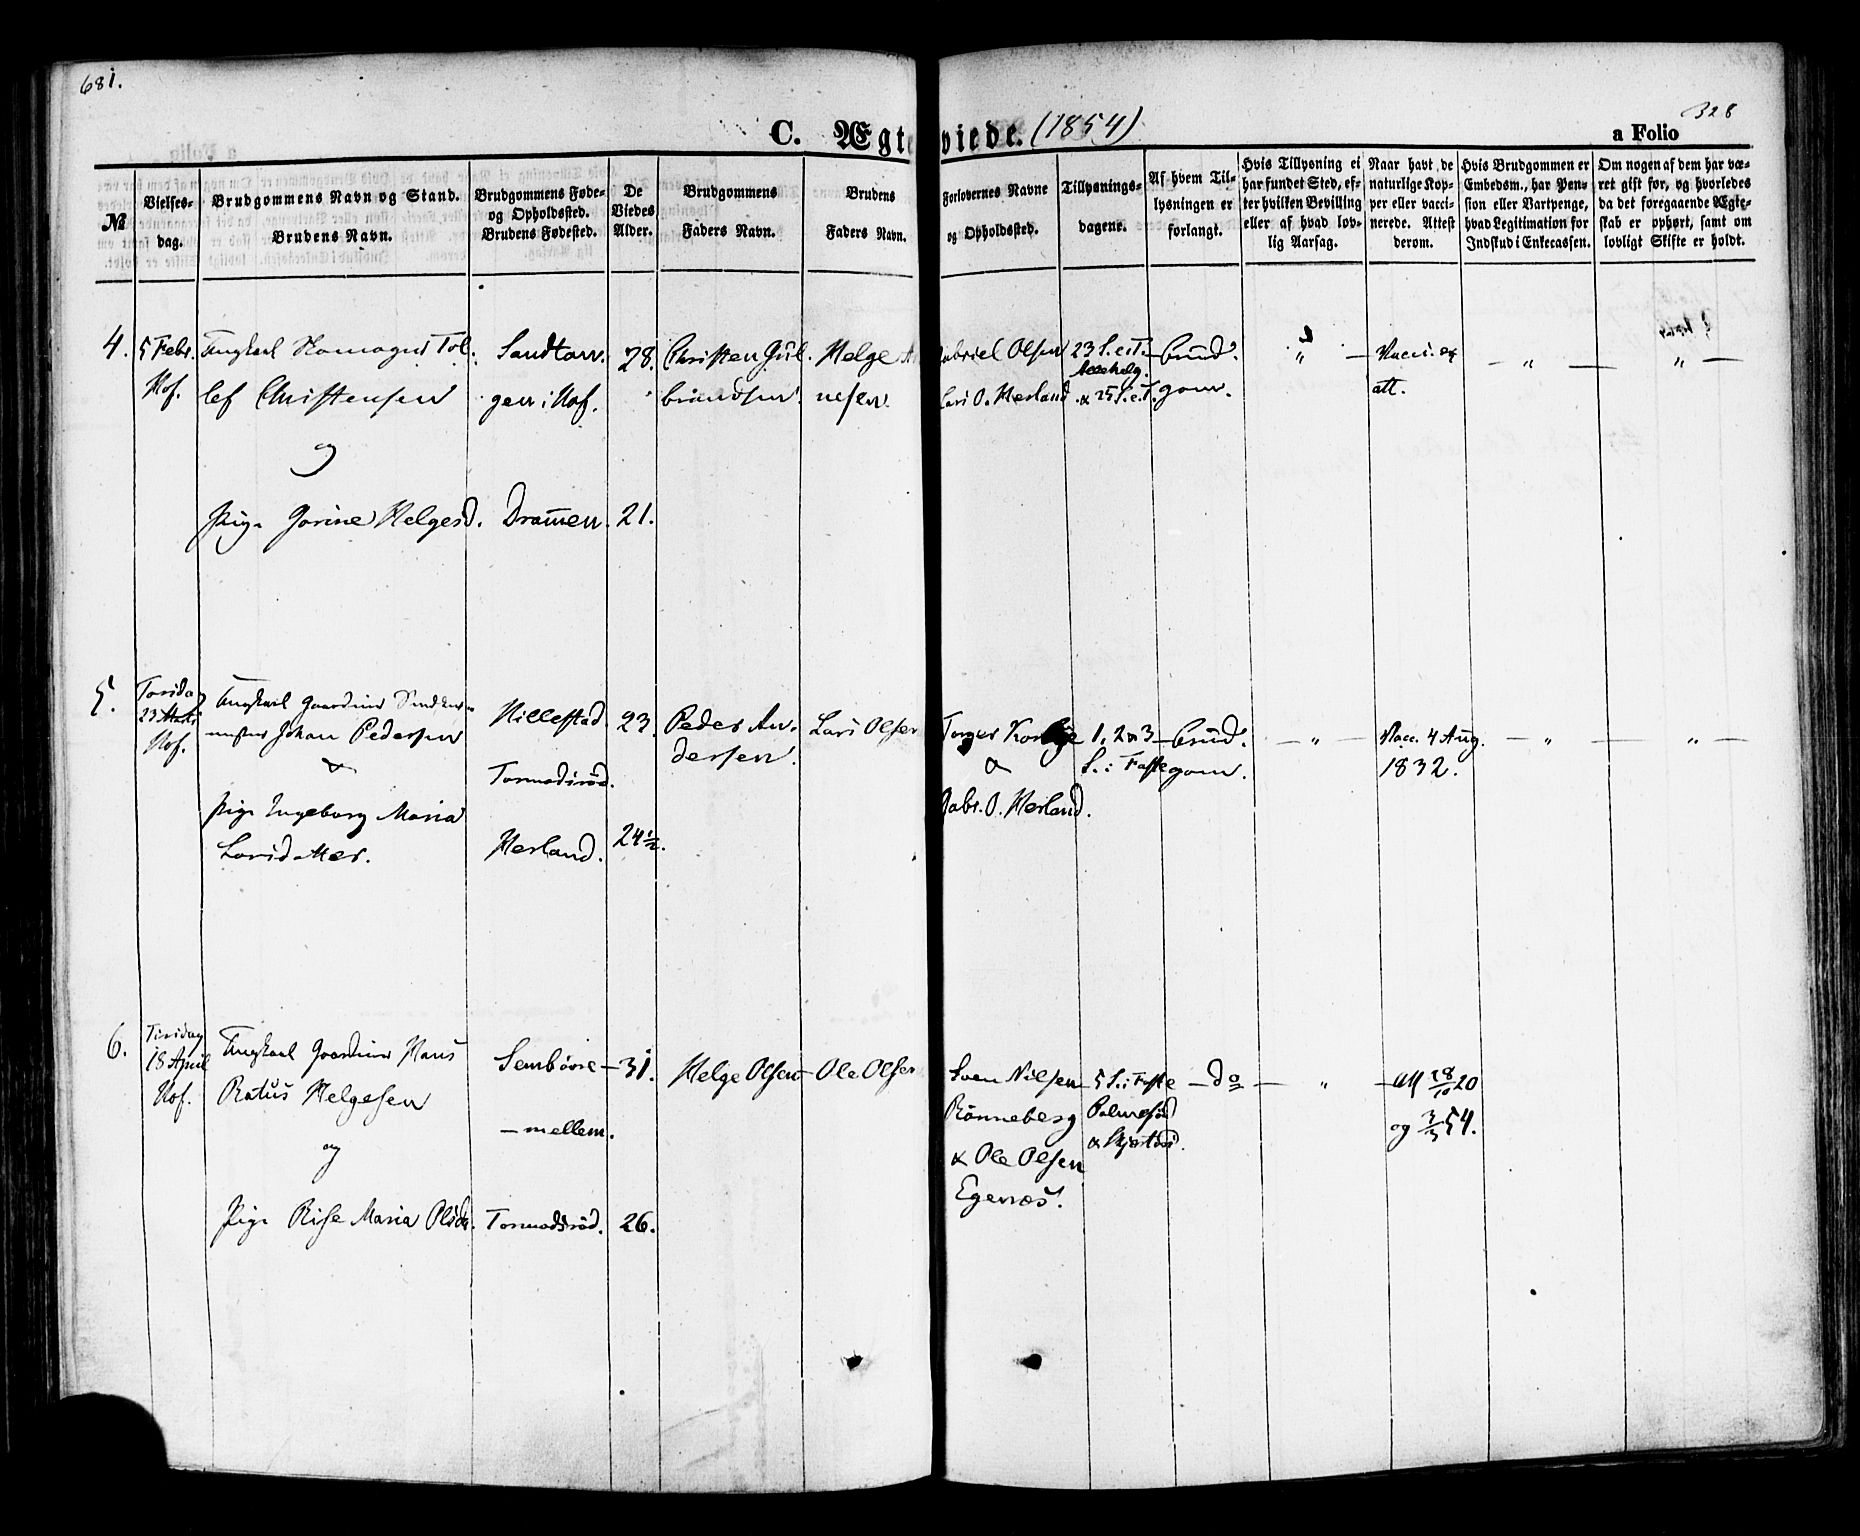 681.
328
C. Ægteviede. (1854)
a Folio
№
Vielses-
dag.
Brudgommens Navn og Stand.
Brudens Navn.
Brudgommens Føde-
og Opholdssted.
Brudens Fødested.
De
Viedes
Alder.
Brudgommens
Faders Navn.
Brudens
Faders Navn.
Forlovernes Navne
og Opholdssted.
Tillysnings-
dagene.
Af hvem Til-
lysningen er
forlangt.
Hvis Tillysning ei
har fundet Sted, ef-
ter hvilken Bevilling
eller af hvad lov-
lig Aarsag.
Naar havt de
naturlige Kop-
per eller vacci-
nerede. Attest
derom.
Hvis Brudgommen er
Embedsm., har Pen-
sion eller Vartpenge,
hvad Legitimation for
Indskud i Enkecassen.
Om nogen af dem har væ-
ret gift før, og hvorledes
da det foregaaende Ægte-
skab er ophørt, samt om
lovligt Skifte er holdt.
4.
5 Febr.
Hof.
Ungkarl Tol-
lef Christensen
og
Pige Gorine Helgesd.
gen i Hof.
Drammen.
28.
21.
Christen Gul-
brandsen.
Helge
nesen.
Gabriel Olsen
Lars O. Herland
23 S. e. T.
Allehelg.
& 25 S. e. T.
Brud-
gom.
"
Vacci. og
att.
"
"
5.
Torsdag
23 Marts
Hof.
Ungkarl Gaardm.
Johan Pedersen
&
Pige Ingeborg Maria
Larsdatter.
Hillestad
Tormodsrød.
Herland.
23.
24½.
Peder An-
dersen.
Lars Olsen
&
Gabr. O. Herland.
1, 2 & 3
S. i Faste
Brud-
gom.
"
Vacc. 4 Aug.
1832.
"
"
6.
Tirsdag
18 April
Hof.
Ungkarl Gaardm. Hans
Ratus Helgesen
og
Pige Rise Maria Olsdr.
Sembøvre
mellem.
Tormodsrød.
31.
26.
Helge Olsen
Ole Olsen
Soen Nilsen
Rønneberg
& Ole Olsen
Egenæs.
5 S. i Faste
Palmesød
& Skjertsd.
do
"
att 18/10 20
og 3/3 54.